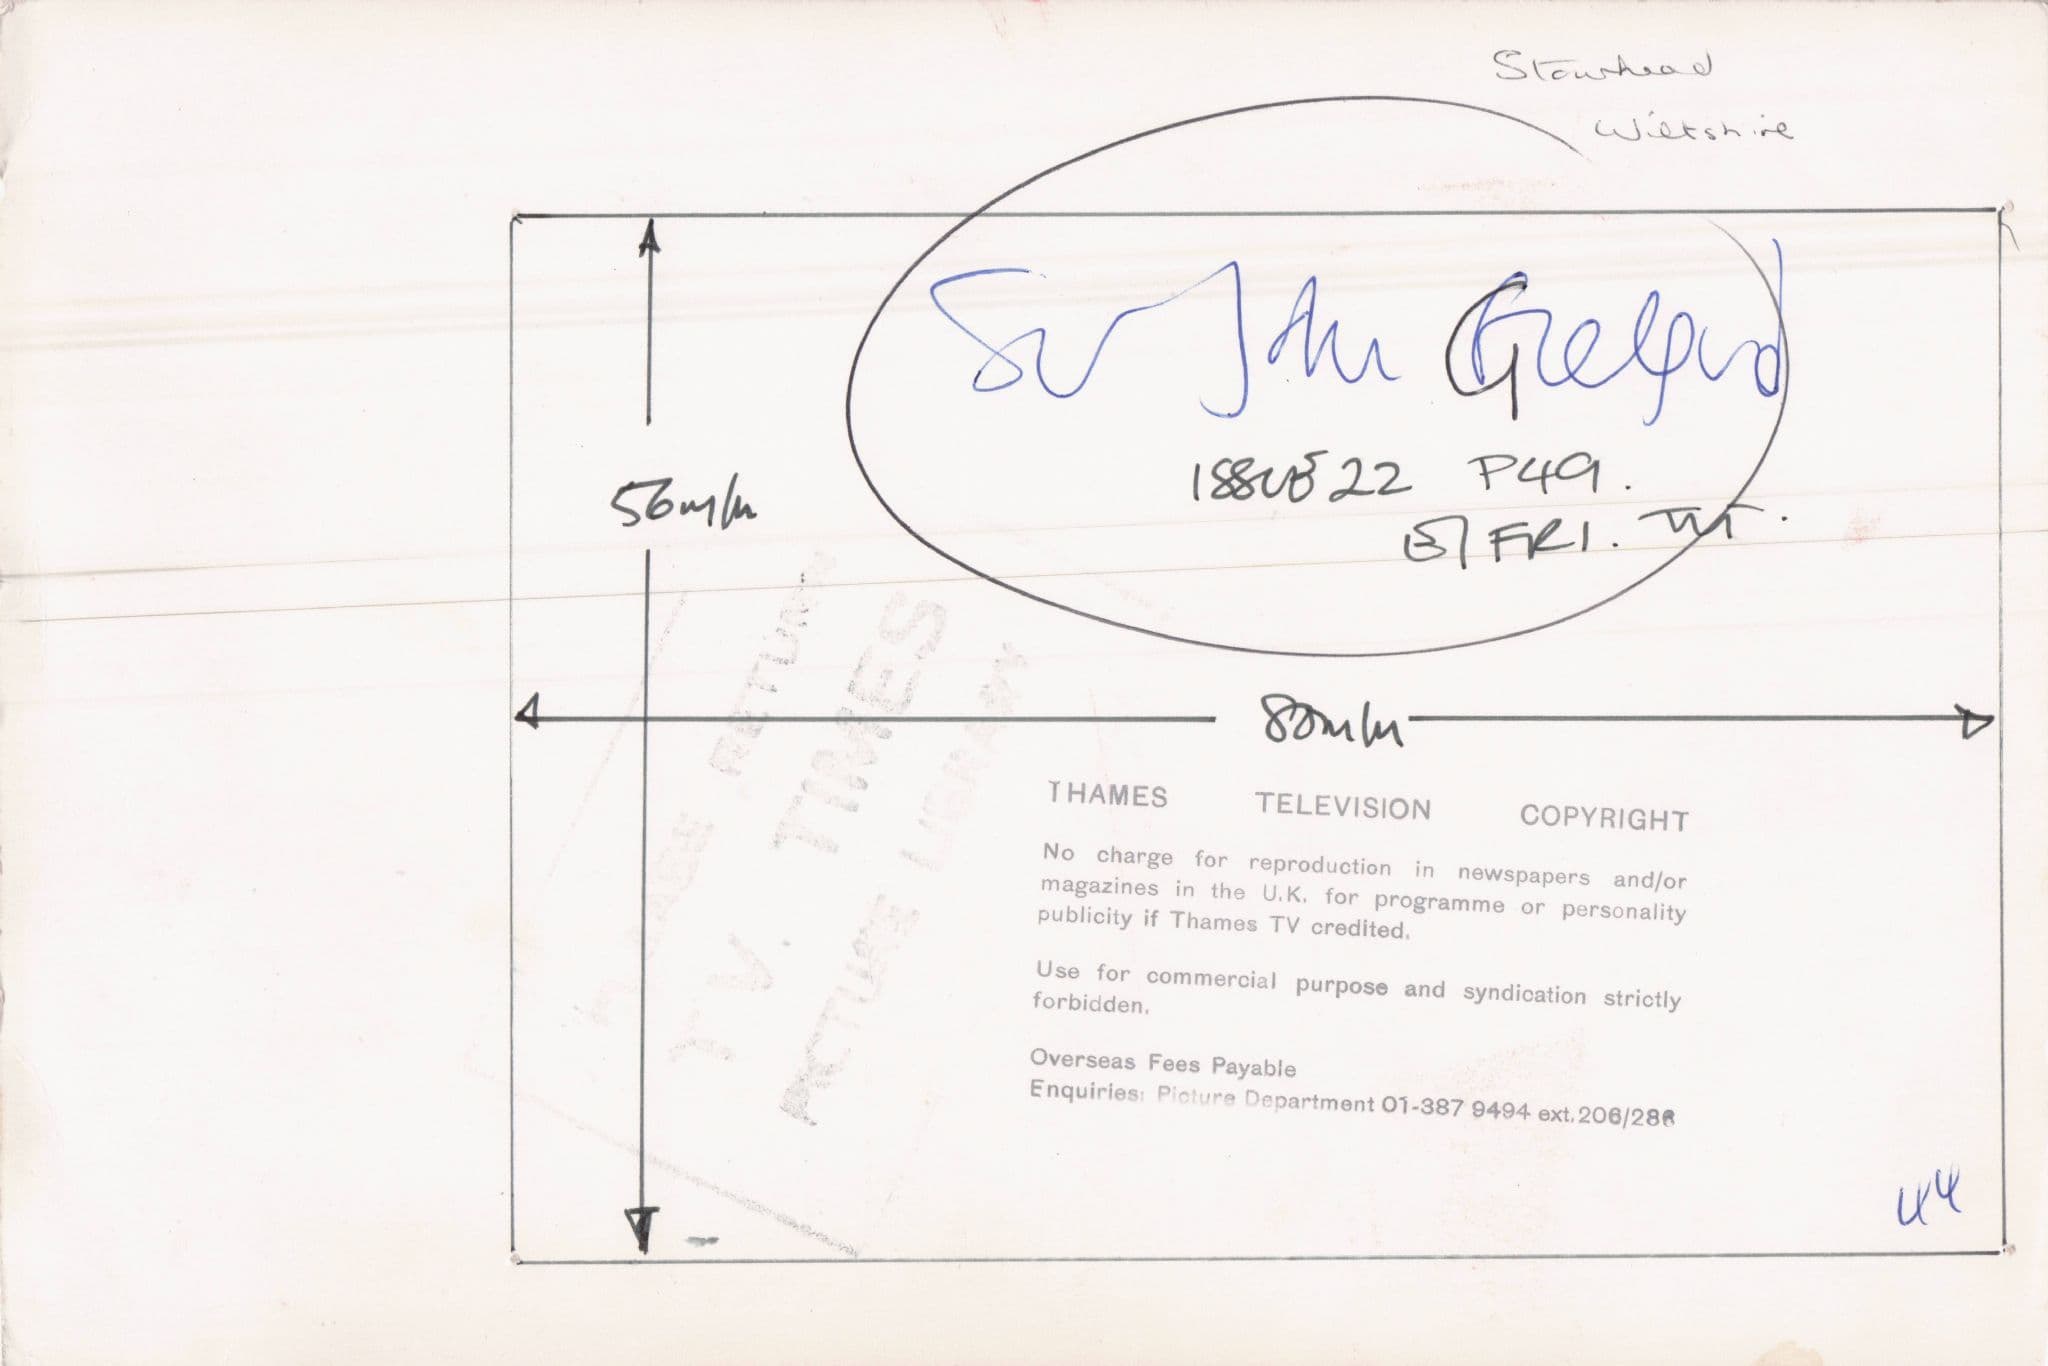 Stourhead
Wiltshire
Sir John Gielgud
ISSUE 22 P49.
E/FRI. TVT.
56m/m
80m/m
PLEASE RETURN
T.V. TIMES
PICTURE LIBRARY
THAMES TELEVISION COPYRIGHT
No charge for reproduction in newspapers and/or
magazines in the U.K. for programme or personality
publicity if Thames TV credited.
Use for commercial purpose and syndication strictly
forbidden.
Overseas Fees Payable
Enquiries: Picture Department 01-387 9494 ext.206/286
44